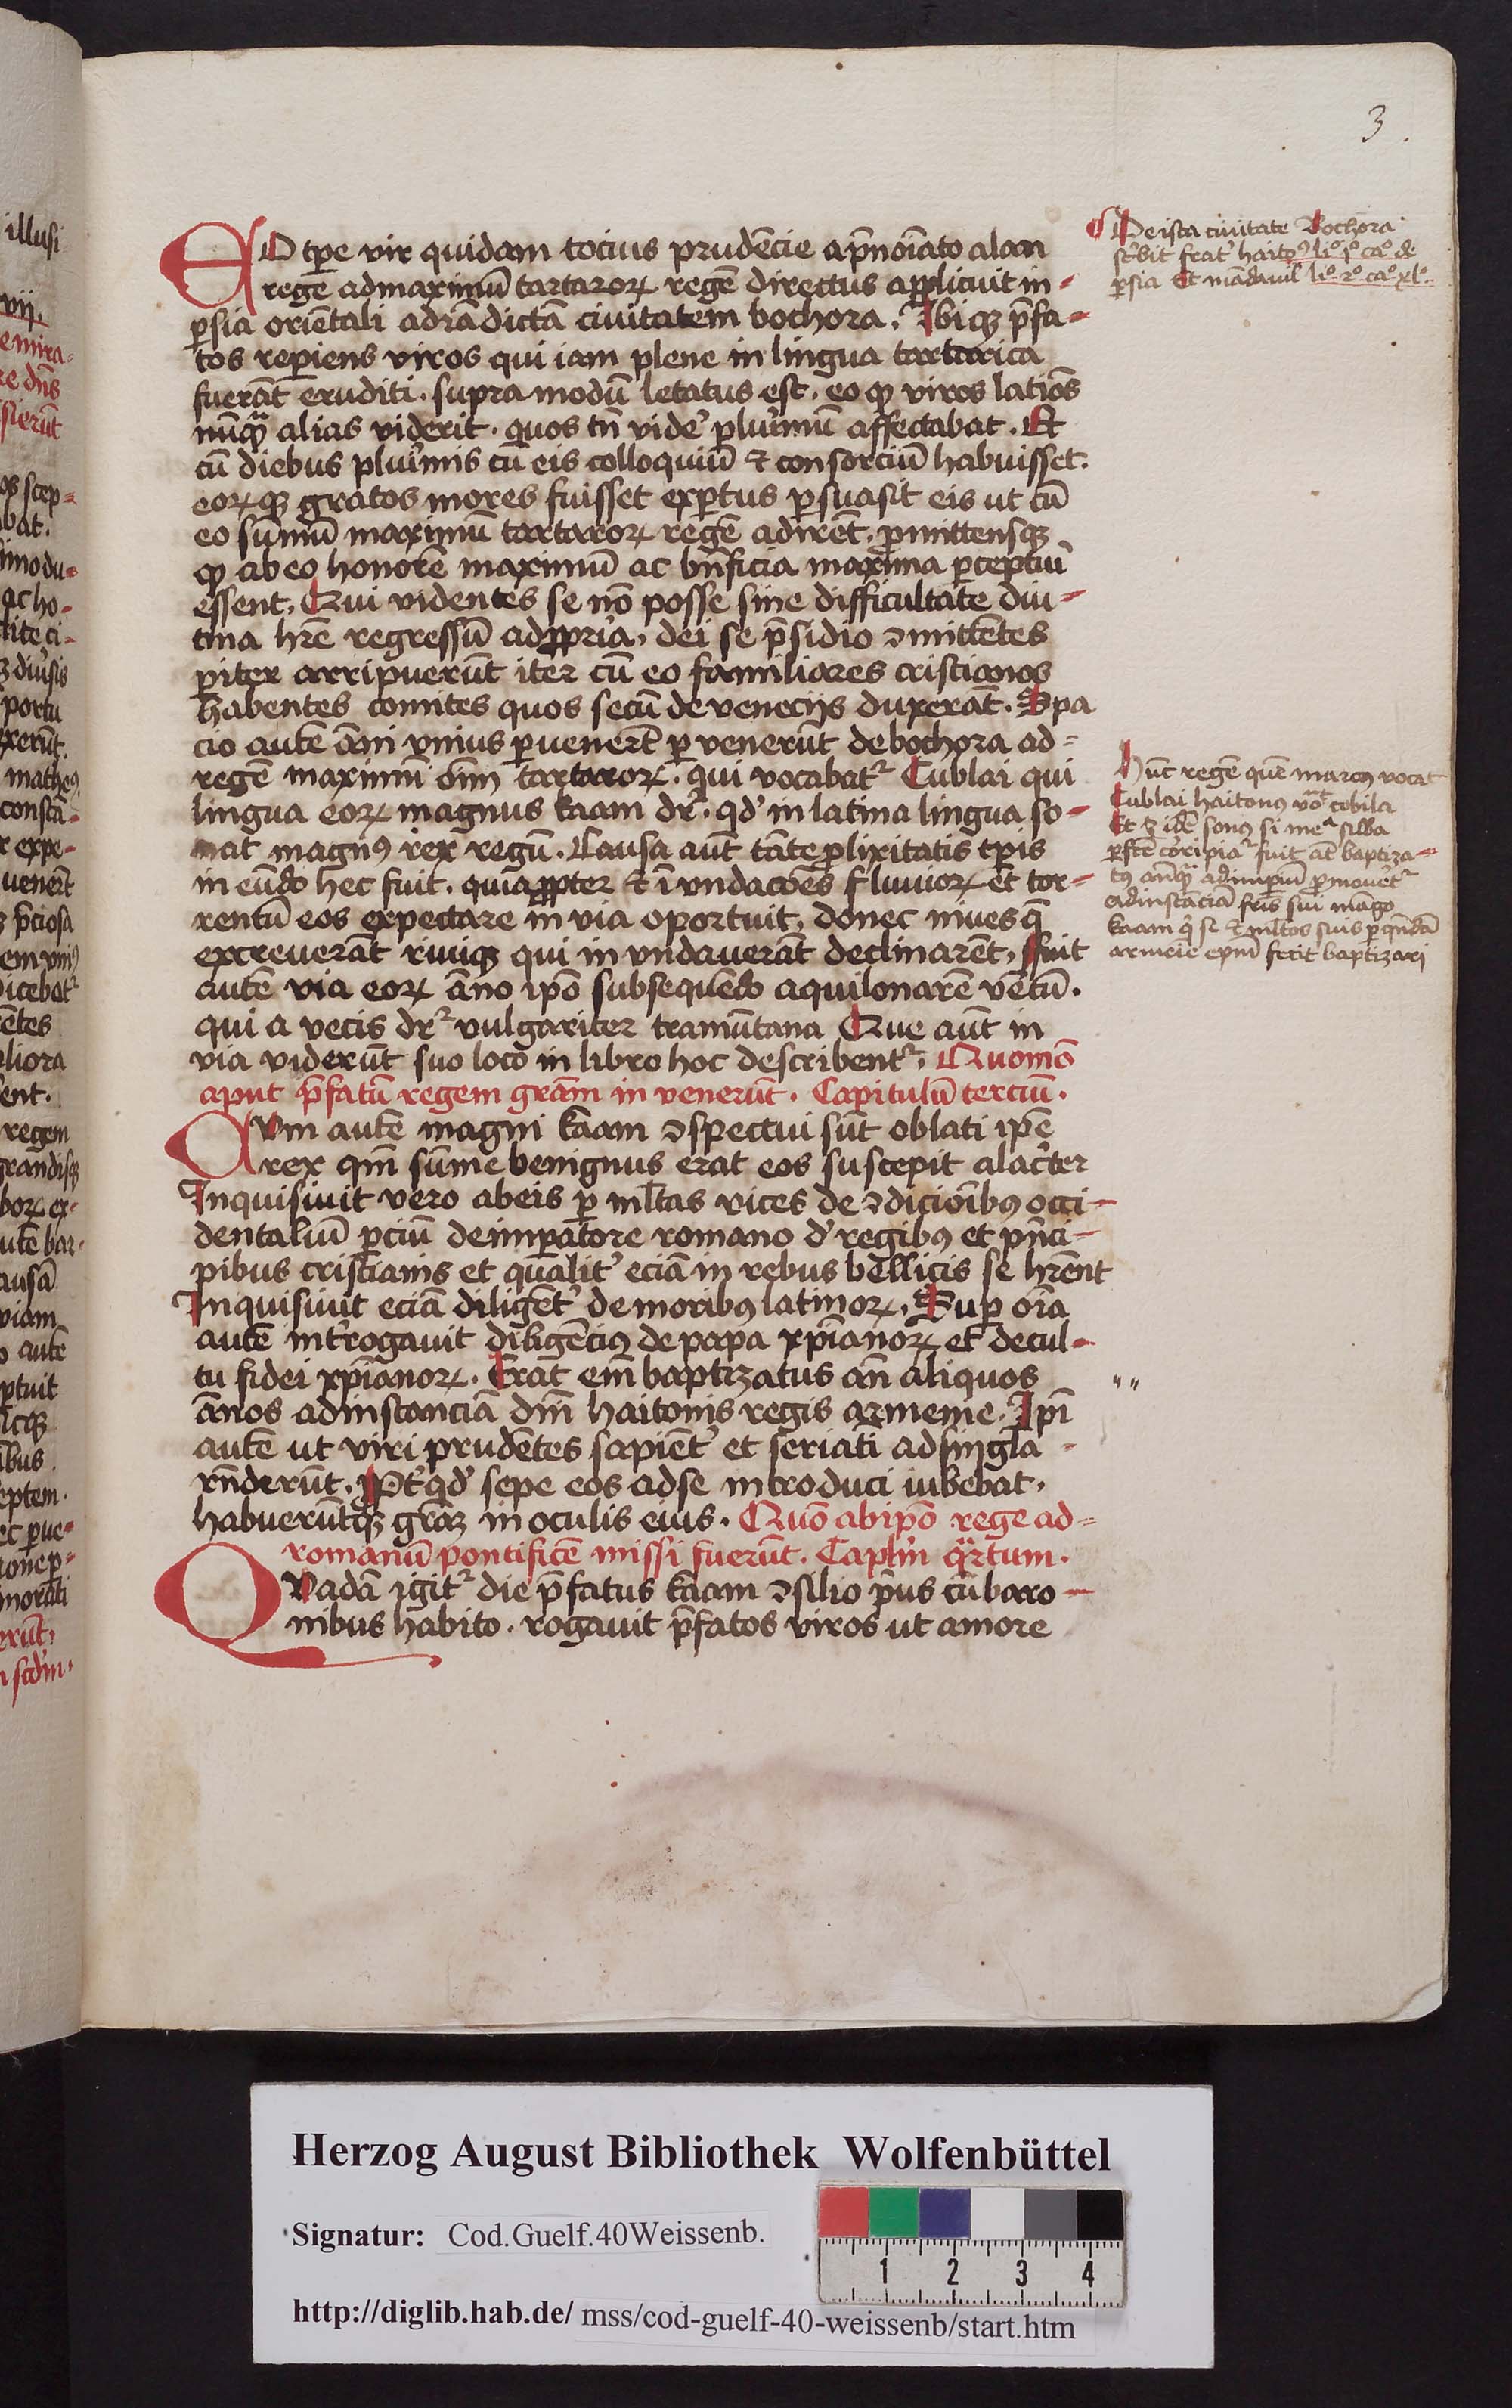 3.
EO tp̄e vir quidam tocius prudēcie ap̄noīato alan
regē admaximū tartaroꝝ regē directus applicuit in
ꝑsia oriētali adiādictā ciuitatem bochora. Ibiqꝫ p̄fa-
tos repiens viros qui iam plene in lingua tartarica
fuerāt eruditi. supra modū letatus est. eo ꝙ viros latiōs
nūqꝫ alias viderit. quos tn̄ videˀ plurimū affectabat. Et
cū diebus pluꝛimis cū eis colloquiū ⁊ consorciū habuisset.
eoꝝqꝫ gratos mores fuisset exꝑtus ꝑsuasit eis ut cū
eo sūmū maximū tartaroꝝ regē adirēt. ꝓmittensqꝫ
ꝙ ab eo honorē maximū ac bn̄ficia maxima ꝑceptuí
essent. Qui videntes se nō posse sine difficultate diu-
tina hr̄e regressū ad ꝓpria. dei se p̄sidio ꝯmittētes
ꝑiter arripuerūt iter cū eo familiares cristianos
habentes comites quos secū de venecijs duxerāt. Spa
cio autē āni vnius ꝑvenerēt ꝑ venerūt debochora ad-
regē maximū oīm tartaroꝝ. qui vocabatᷣ Cublai qui
lingua eoꝝ magnus kaam drˀ. qdˀ in latina lingua so-
nat magnꝰ rex regū. Causa aūt tāte ꝓlixitatis tp̄is
in eūdo hec fuit. quia ꝓpter ⁊ ī vndacōes fluuioꝝ et tor-
rentū eos expectare in via oportuit. donec niues q̄
excreuerāt riuiqꝫ qui in vndauerāt declinarēt. ffuit
autē via eoꝝ āno ip̄o subsequēdo aquilonarē vētū.
qui a vecis drᷣ vulgariter tramūtana Que aūt in
via viderūt suo loco in libro hoc describentᷣ. Quomō
aput p̄fatū regem grām in venerūt. Capitulū terciū.
CVm autē magni kaam ꝯspectui sūt oblati ip̄e
rex qm̄ sūme benignus erat eos suscepit alacˀter
Inquisiuit vero abeis ꝑ mltas vices de ꝯdicioībꝰ occi-
dentaliū ꝑciū deimꝑatore romano dˀ regibꝰ et pn̄ci-
pibus cristianis et qualitˀ eciā in rebus bellicis se hr̄ent
Inquisiuit eciā diligētˀ de moribꝰ latinoꝝ. Suꝑ oīa
autē intˀrogauit diligēciꝰ de papa xp̄ianoꝝ et decul-
tu fidei xp̄ianoꝝ. Erat em̄ baptizatus an̄ aliquos
ānos adinstanciā dn̄i haitonis regis armenie. Ipī
autē ut viri prudētes sapiētˀ et seriati ad singl̄a
rn̄derūt. Ptˀqdˀ sepe eos adse introduci iubebat.
habuerūtqꝫ grāꝫ in oculis eius. Quō abipō rege ad-
romanū pontificē missi fuerūt. Capl̄m qᷓrtum.
QVadā igitᷣ die p̄fatus kaam ꝯsilio pˀus cū baro-
nibus habito. rogauit p̄fatos viros ut amore
De ista ciuitate Bochora
scˀbit fratˀ haitoꝰ liº pº caº de
ꝑsia Et mādauil liº 2º caº xlº
Hūc regē quē marcꝰ vocat
Cublai haitonꝰ vō cobila
Et ꝫ idē sonꝰ si meᵃ silba
corripiaᷣ fuit āt baptiza-
tꝰ anqᷓ ad imꝑiū ꝓmouetᷣ
adinstāciā frīs sui mango
kaam qˀ se ⁊ mltos suis ꝑ qn̄dā
armeie ep̄m fecit baptizari
illusi
vij.
emira-
re dn̄s
bat.
imodu-
ac ho-
portu
xerūt.
matheꝰ
r expe-
uenerēt
dicebatᷣ
liora
ent.
regem
grandisqꝫ
utē bar-
ausā
viam
o autē
ptuit
ibus
eptem.
morati
Herzog August Bibliothek Wolfenbüttel
Signatur: Cod.Guelf.40Weissenb.
1 2 3 4
http://diglib.hab.de/ mss/cod-guelf-40-weissenb/start.htm